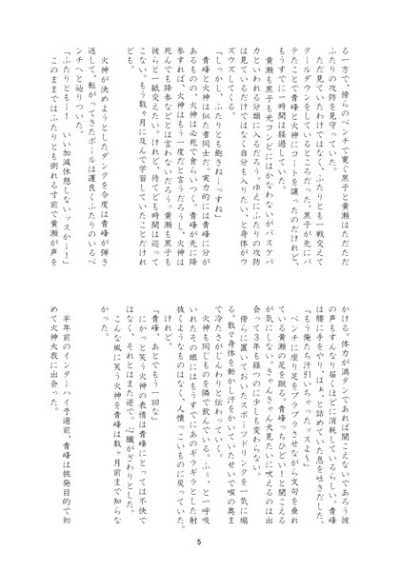 る一方で、傍らのベンチで寛ぐ黒子と黄瀬はただただ
ふたりの攻防を見守っていた。
ただ見ていたわけではなく、ふたりとも一戦交えて
クールダウンをしているところだった。黒子が先にバ
テたことで青峰と火神にコートを譲ったのだけれど、
もうすでに一時間は経過していた。
黄瀬も黒子も光コンビにはかなわないがバスケバ
カといわれる分類に入るだろう。ゆえにふたりの攻防
は見ているだけではなく自分も入りたい、と身体がウ
ズウズしてくる。
「しっかし、ふたりとも飽きねーっすね」
青峰と火神は似た者同士だ。実力的には青峰に分が
あるものの、火神は必死で食らいつく。青峰が先に降
参すれば、火神はもう一度だと言うだろうし、火神は
死んでも降参などとは言わないだろう。黄瀬も黒子も
彼らと一戦交えたい。けれど、待てども時間は巡って
こない。もう数ヶ月に及んで学習していたことだけれ
ども。
火神が決めようとしたダンクを今度は青峰が弾き
返して、転がってきたボールは運良くふたりのいるベ
ンチへと辿りついた。
「ふたりともー! いい加減休憩しないッスかー!」
このままではふたりとも倒れる寸前で黄瀬が声を
かける。体力が満タンであれば聞こえないであろう彼
の声もすんなり届くほどに消耗しているらしい。青峰
は腰に手をやり、はぁ、と詰めていた息を吐きだした。
「もう俺たち汗引いちゃったッスよ〜」
ベンチに座り足をブラブラさせながら文句を垂れ
ている黄瀬の足を蹴る。青峰っちひどい!と聞こえる
が気にしない。きゃんきゃん犬見たいに吠えるのは出
会って3年も経つのに少しも変わらない。
傍らに置いておいたスポーツドリンクを一気に煽
る。散々身体を動かし汗をかいていたせいで喉の奥ま
で冷たさがじんわりと伝わっていく。
火神も同じものを隣で飲んでいる。ふぅ、と一呼吸
いれたその眼にはもうすでにあのギラギラとした射
抜くようなものはなく、人懐っこいものに戻っていた。
けれど。
「青峰、あとでもう一回な」
にかっと笑う火神の表情は青峰にとっては不快で
はなく、それとはまた逆で。心臓がざわりとした。
こんな風に笑う火神を青峰は数ヶ月前まで知らな
かった。
半年前のインターハイ予選前、青峰は挑発目的で初
めて火神大我に出会った。
5